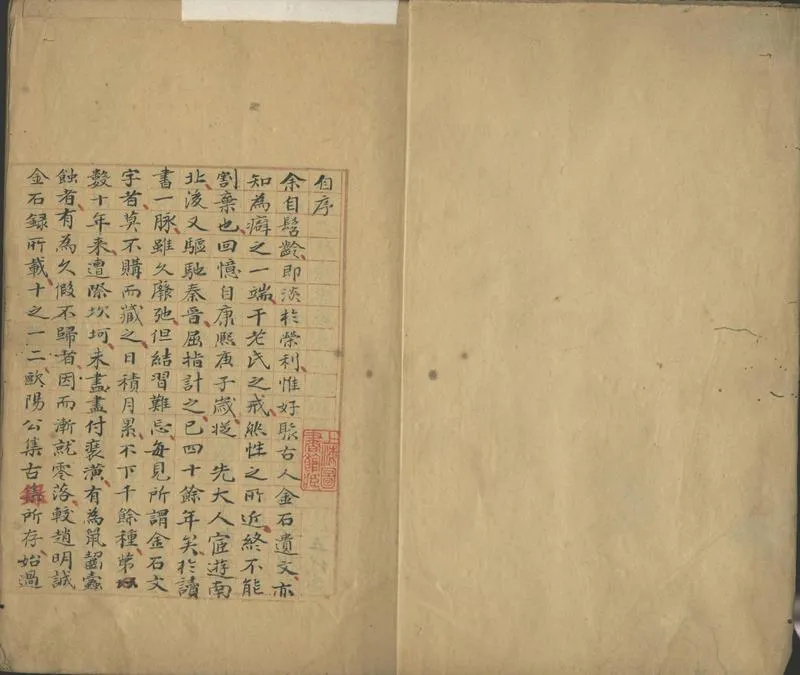 自序
余自髫齡即淡於榮利惟好聚古人金石遺文亦
知為癖之一端干老氏之戒然性之所近終不能
割棄也回憶自康熙庚子歲從 先大人宦遊南
北後又驅馳秦晉屈指計之已四十餘年矣於讀
書一脉雖久廢弛但結習難忘每見所謂金石文
字者莫不購而藏之日積月累不下千餘種第
數十年来遭際坎坷未盡盡付裒潢有為鼠齧蠹
蝕者有為久假不歸者因而漸就零落較趙明誠
金石録所載十之一二歐陽公集古錄所存始過
上海圖
書館藏